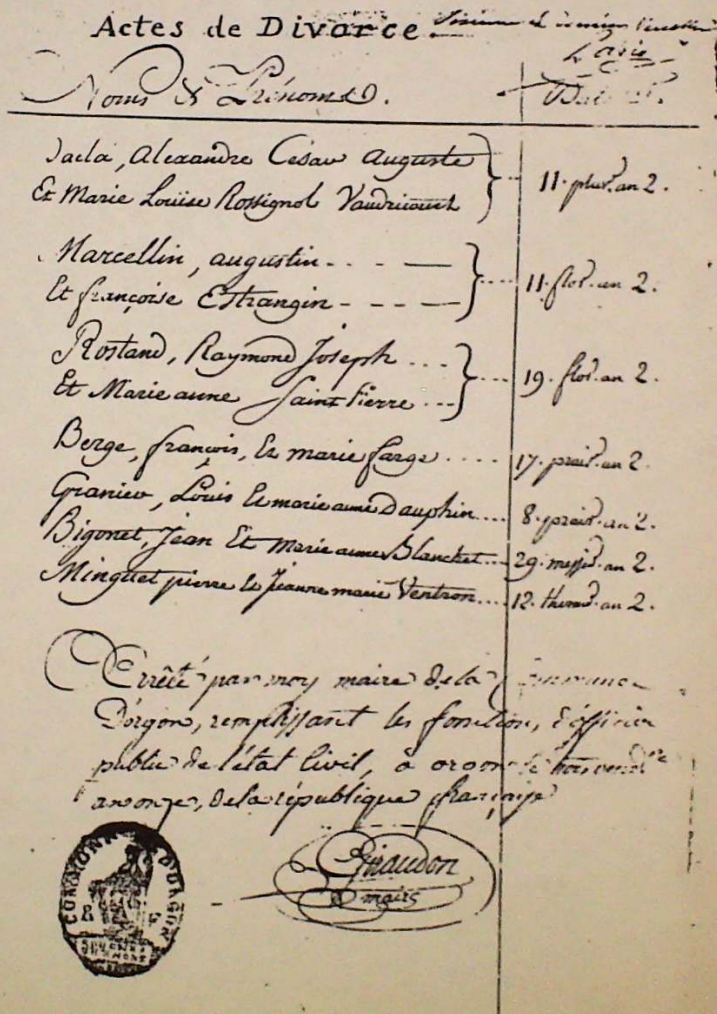 Actes de Divorce
Noms & Prénoms.
Alexandre César Auguste
Et Marie Louise Rossignol Vaudricourt
11. pluv. an 2.
Marcellin, augustin
Et françoise Estrangin
11. flor. an 2.
Rostand, Raymond Joseph
Et Marie anne Saint Pierre
19. flor. an 2.
Berge, françois, Et marie farge
17. prair. an 2.
Granier, Louis Et marie anne Dauphin
8. prair. an 2.
Bigonet, Jean Et Marie anne Blanchet
29. messid. an 2.
Minguet pierre Et Jeanne marie Ventron
12. thermid. an 2.
Errêté par moy maire de la Commune
D'orgon, remplissant les fonction, d'officier
public de l'état Civil, à orgon le
an onze, de la république française
COMMUNE D'ORGON
R F
Giraudon
maire